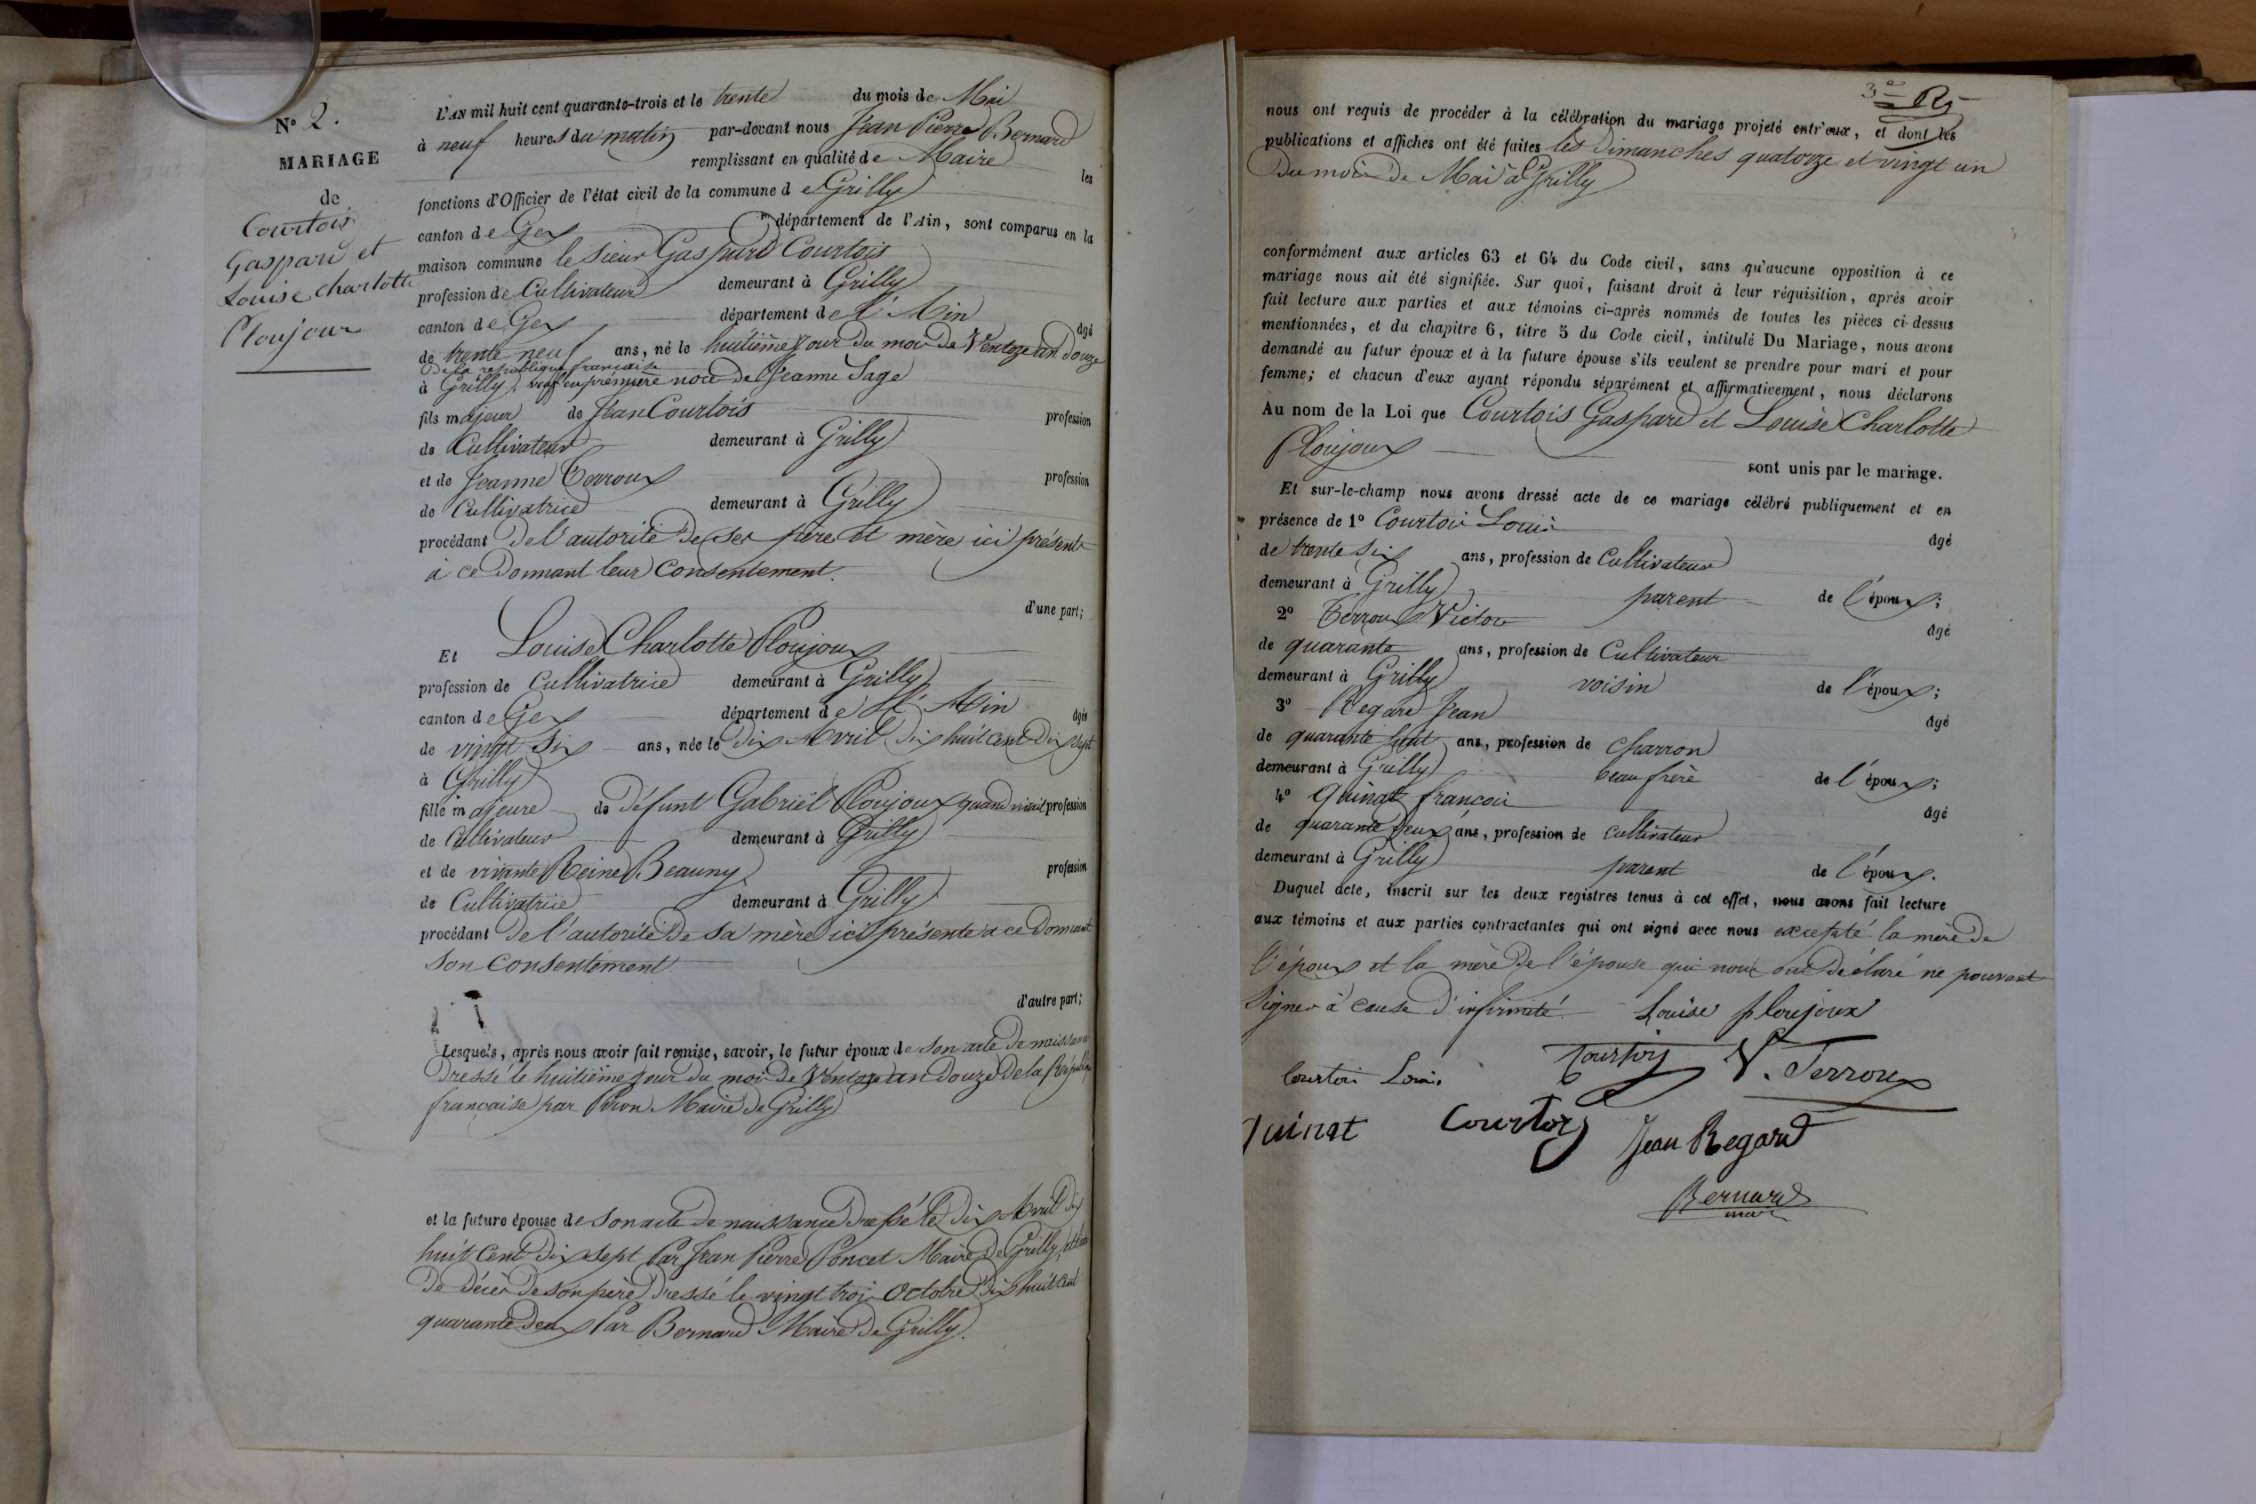 N° 2.
MARIAGE
de
Courtois
Gaspard et
Louise charlotte
Ploujoux
L'AN mil huit cent quarante-trois et le trente du mois de Mai
à neuf heures du matin par-devant nous Jean Pierre Bernard
remplissant en qualité de Maire les
fonctions d'Officier de l'état civil de la commune de Grilly
canton de Gex département de l'Ain, sont comparus en la
maison commune le sieur Gaspard Courtois
profession de Cultivateur demeurant à Grilly
canton de Gex département de l'Ain âgé
de trente neuf ans, né le huitième jour du mois de Ventoze an douze
de la république française
à Grilly, veuf en première noce de Jeanne Sage
fils majeur de Jean Courtois profession
de Cultivateur demeurant à Grilly
et de Jeanne Terroux profession
de Cultivatrice demeurant à Grilly
procédant de l'autorité de ses père et mère ici présents
à ce donnant leur consentement.
d'une part;
Et Louise Charlotte Ploujoux
profession de Cultivatrice demeurant à Grilly
canton de Gex département de l'Ain âgée
de vingt six ans, née le dix Avril dix huit cent dix sept
à Grilly
fille majeure de défunt Gabriël Ploujoux quand vivait profession
de Cultivateur demeurant à Grilly
et de vivante Reine Beauny profession
de Cultivatrice demeurant à Grilly
procédant de l'autorité de sa mère ici présente à ce donnant
son consentement
d'autre part;
Lesquels, après nous avoir fait remise, savoir, le futur époux de son acte de naissance
dressé le huitième jour du mois de Ventoze an douze de la République
française par Maire de Grilly
et la future épouse de son acte de naissance dressé le dix Avril dix
huit cent dix sept Par Jean Pierre Poncet Maire de Grilly,
de décès de son père dressé le vingt trois Octobre dix huit cent
quarante deux Par Bernard Maire de Grilly.
nous ont requis de procéder à la célébration du mariage projeté entr'eux, et dont les
publications et affiches ont été faites les Dimanches quatorze et vingt un
du mois de Mai à Grilly
conformément aux articles 63 et 64 du Code civil, sans qu'aucune opposition à ce
mariage nous ait été signifiée. Sur quoi, faisant droit à leur réquisition, après avoir
fait lecture aux parties et aux témoins ci-après nommés de toutes les pièces ci-dessus
mentionnées, et du chapitre 6, titre 5 du Code civil, intitulé Du Mariage, nous avons
demandé au futur époux et à la future épouse s'ils veulent se prendre pour mari et pour
femme; et chacun d'eux ayant répondu séparément et affirmativement, nous déclarons
Au nom de la Loi que Courtois Gaspard et Louise Charlotte
Ploujoux sont unis par le mariage.
Et sur-le-champ nous avons dressé acte de ce mariage célébré publiquement et en
présence de 1° Courtois Louis âgé
de trente six ans, profession de Cultivateur
demeurant à Grilly parent de l'époux;
2° Terroux Victor âgé
de quarante ans, profession de Cultivateur
demeurant à Grilly voisin de l'époux;
3° Regard Jean âgé
de quarante huit ans, profession de Charron
demeurant à Grilly beau frère de l'époux;
4° Quinat françois âgé
de quarante deux ans, profession de cultivateur
demeurant à Grilly parent de l'époux.
Duquel acte, inscrit sur les deux registres tenus à cet effet, nous avons fait lecture
aux témoins et aux parties contractantes qui ont signé avec nous excepté la mère de
l'époux et la mère de l'épouse qui nous ont déclaré ne pouvoir
signer à cause d'infirmité. Louise ploujoux
Courtois Louis Courtois V. Terroux
quinat Courtois Jean Regard
Bernard
maire